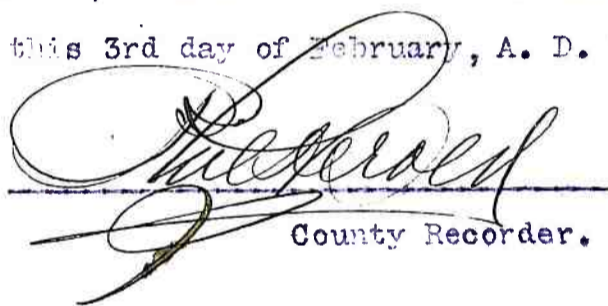 this 3rd day of February, A. D.
County Recorder.